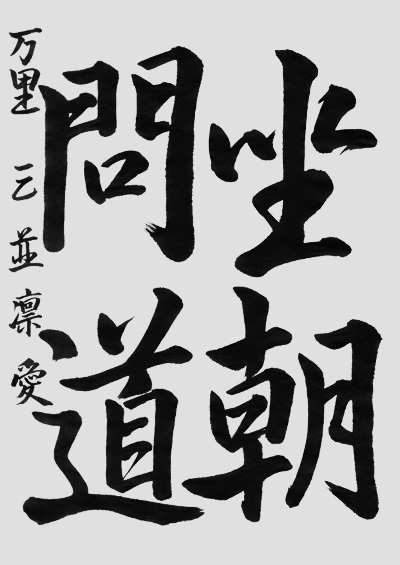 坐朝
問道
万里 三並凛愛